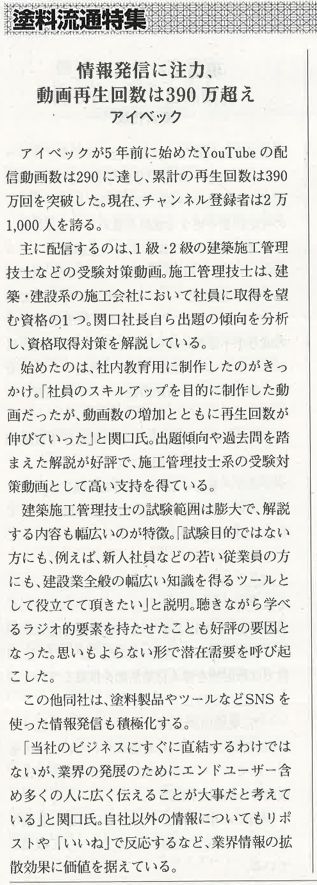 塗料流通特集
情報発信に注力、
動画再生回数は390万超え
アイベック
アイベックが5年前に始めたYouTubeの配
信動画数は290に達し、累計の再生回数は390
万回を突破した。現在、チャンネル登録者は2万
1,000人を誇る。
主に配信するのは、1級・2級の建築施工管理
技士などの受験対策動画。施工管理技士は、建
築・建設系の施工会社において社員に取得を望
む資格の1つ。関口社長自ら出題の傾向を分析
し、資格取得対策を解説している。
始めたのは、社内教育用に制作したのがきっ
かけ。「社員のスキルアップを目的に制作した動
画だったが、動画数の増加とともに再生回数が
伸びていった」と関口氏。出題傾向や過去問を踏
まえた解説が好評で、施工管理技士系の受験対
策動画として高い支持を得ている。
建築施工管理技士の試験範囲は膨大で、解説
する内容も幅広いのが特徴。「試験目的ではない
方にも、例えば、新人社員などの若い従業員の方
にも、建設業全般の幅広い知識を得るツールと
して役立てて頂きたい」と説明。聴きながら学べ
るラジオ的要素を持たせたことも好評の要因と
なった。思いもよらない形で潜在需要を呼び起
こした。
この他同社は、塗料製品やツールなどSNSを
使った情報発信も積極化する。
「当社のビジネスにすぐに直結するわけでは
ないが、業界の発展のためにエンドユーザー含
め多くの人に広く伝えることが大事だと考えて
いる」と関口氏。自社以外の情報についてもリポ
ストや「いいね」で反応するなど、業界情報の拡
散効果に価値を据えている。